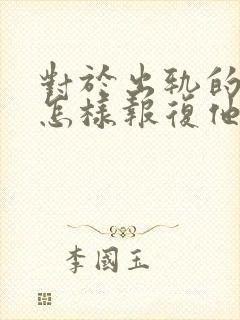 對於出軌的
怎樣報復他
李國玉